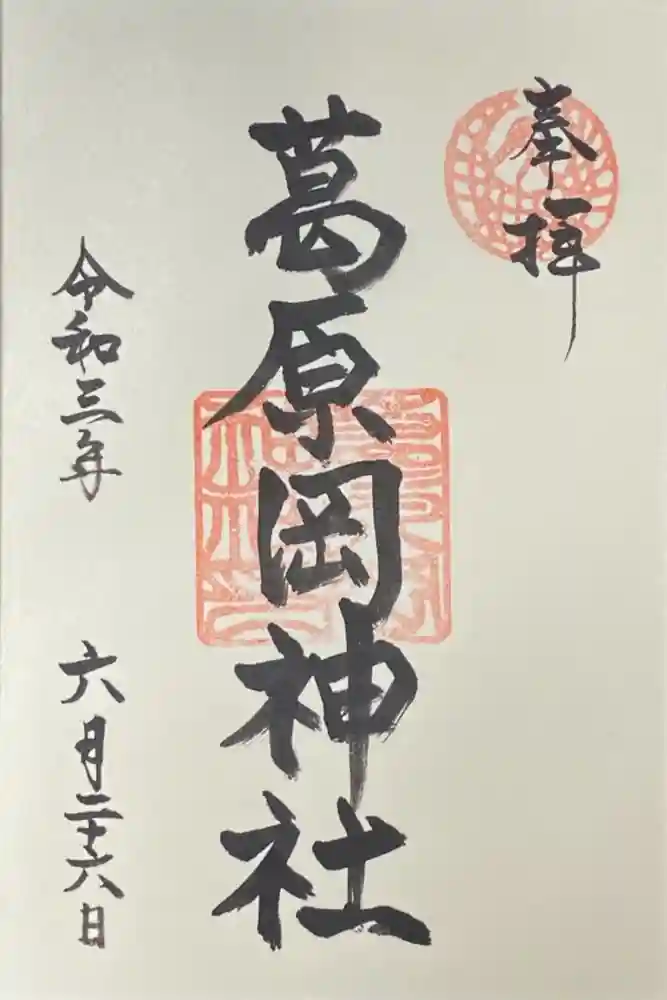 奉拝
葛原岡神社
令和三年 六月二十六日